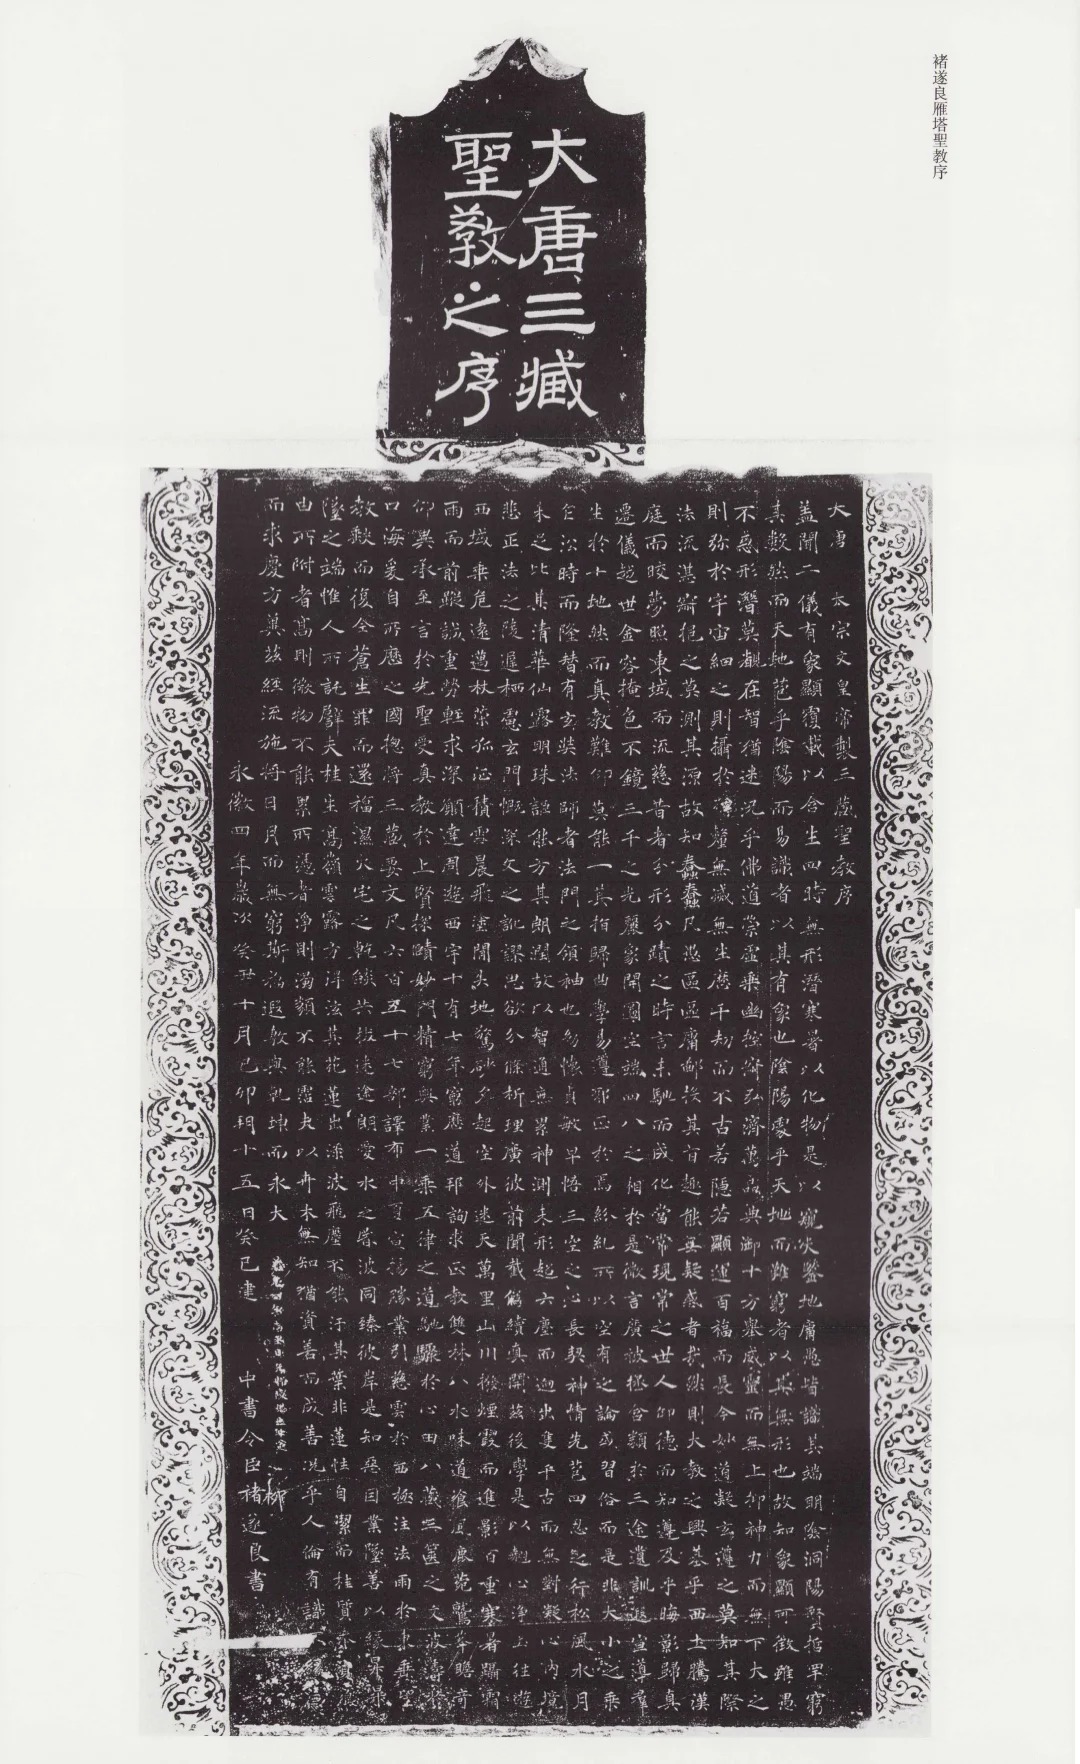 褚遂良雁塔聖教序
大唐三藏
聖教之序
大唐 太宗文皇帝製三藏聖教序
盖聞二儀有象顯覆載以含生四時無形潛寒暑以化物是以窺天鑒地庸愚皆識其端明陰洞陽賢哲罕窮
其數然而天地苞乎陰陽而易識者以其有象也陰陽處乎天地而難窮者以其無形也故知象顯可徵雖愚
不惑形潛莫覩在智猶迷況乎佛道崇虛乘幽控寂弘濟萬品典御十方舉威靈而無上抑神力而無下大之
則弥於宇宙細之則攝於豪釐無滅無生歷千劫而不古若隱若顯運百福而長今妙道凝玄遵之莫知其際
法流湛寂挹之莫測其源故知蠢蠢凡愚區區庸鄙投其旨趣能無疑惑者哉然則大教之興基乎西土騰漢
庭而皎夢照東域而流慈昔者分形分蹟之時言未馳而成化當常現常之世人仰德而知遵及乎晦影歸真
遷儀越世金容掩色不鏡三千之光麗象開圖空端四八之相於是微言廣被拯含類於三途遺訓遐宣導羣
生於十地然而真教難仰莫能一其指歸曲學易遵邪正於焉紛糺所以空有之論或習俗而是非大小之乘
乍沿時而隆替有玄奘法師者法門之領袖也幼懷貞敏早悟三空之心長契神情先苞四忍之行松風水月
未足比其清華仙露明珠詎能方其朗潤故以智通無累神測未形超六塵而迥出隻千古而無對凝心內境
悲正法之陵遲栖慮玄門慨深文之訛謬思欲分條析理廣彼前聞截偽續真開茲後學是以翹心淨土往遊
西域乘危遠邁杖策孤征積雪晨飛塗間失地驚砂夕起空外迷天萬里山川撥煙霞而進影百重寒暑躡霜
雨而前蹤誠重勞輕求深願達周遊西宇十有七年窮歷道邦詢求正教雙林八水味道飡風鹿菀鷲峯瞻奇
仰異承至言於先聖受真教於上賢探賾妙門精窮奧業一乘五律之道馳驟於心田八藏三篋之文波濤於
口海爰自所歷之國揔將三藏要文凡六百五十七部譯布中夏宣揚勝業引慈雲於西極注法雨於東垂聖
教缺而復全蒼生罪而還福濕火宅之乾燄共拔迷途朗愛水之昏波同臻彼岸是知惡因業墜善以緣昇昇
墜之端惟人所託譬夫桂生高嶺雲露方得泫其花蓮出淥波飛塵不能汙其葉非蓮性自潔而桂質本貞良
由所附者高則微物不能累所憑者淨則濁類不能霑夫以卉木無知猶資善而成善況乎人倫有識不緣慶
而求慶方冀茲經流施將日月而無窮斯福遐敷與乾坤而永大
永徽四年歲次癸丑十月己卯朔十五日癸巳建 中書令臣褚遂良書